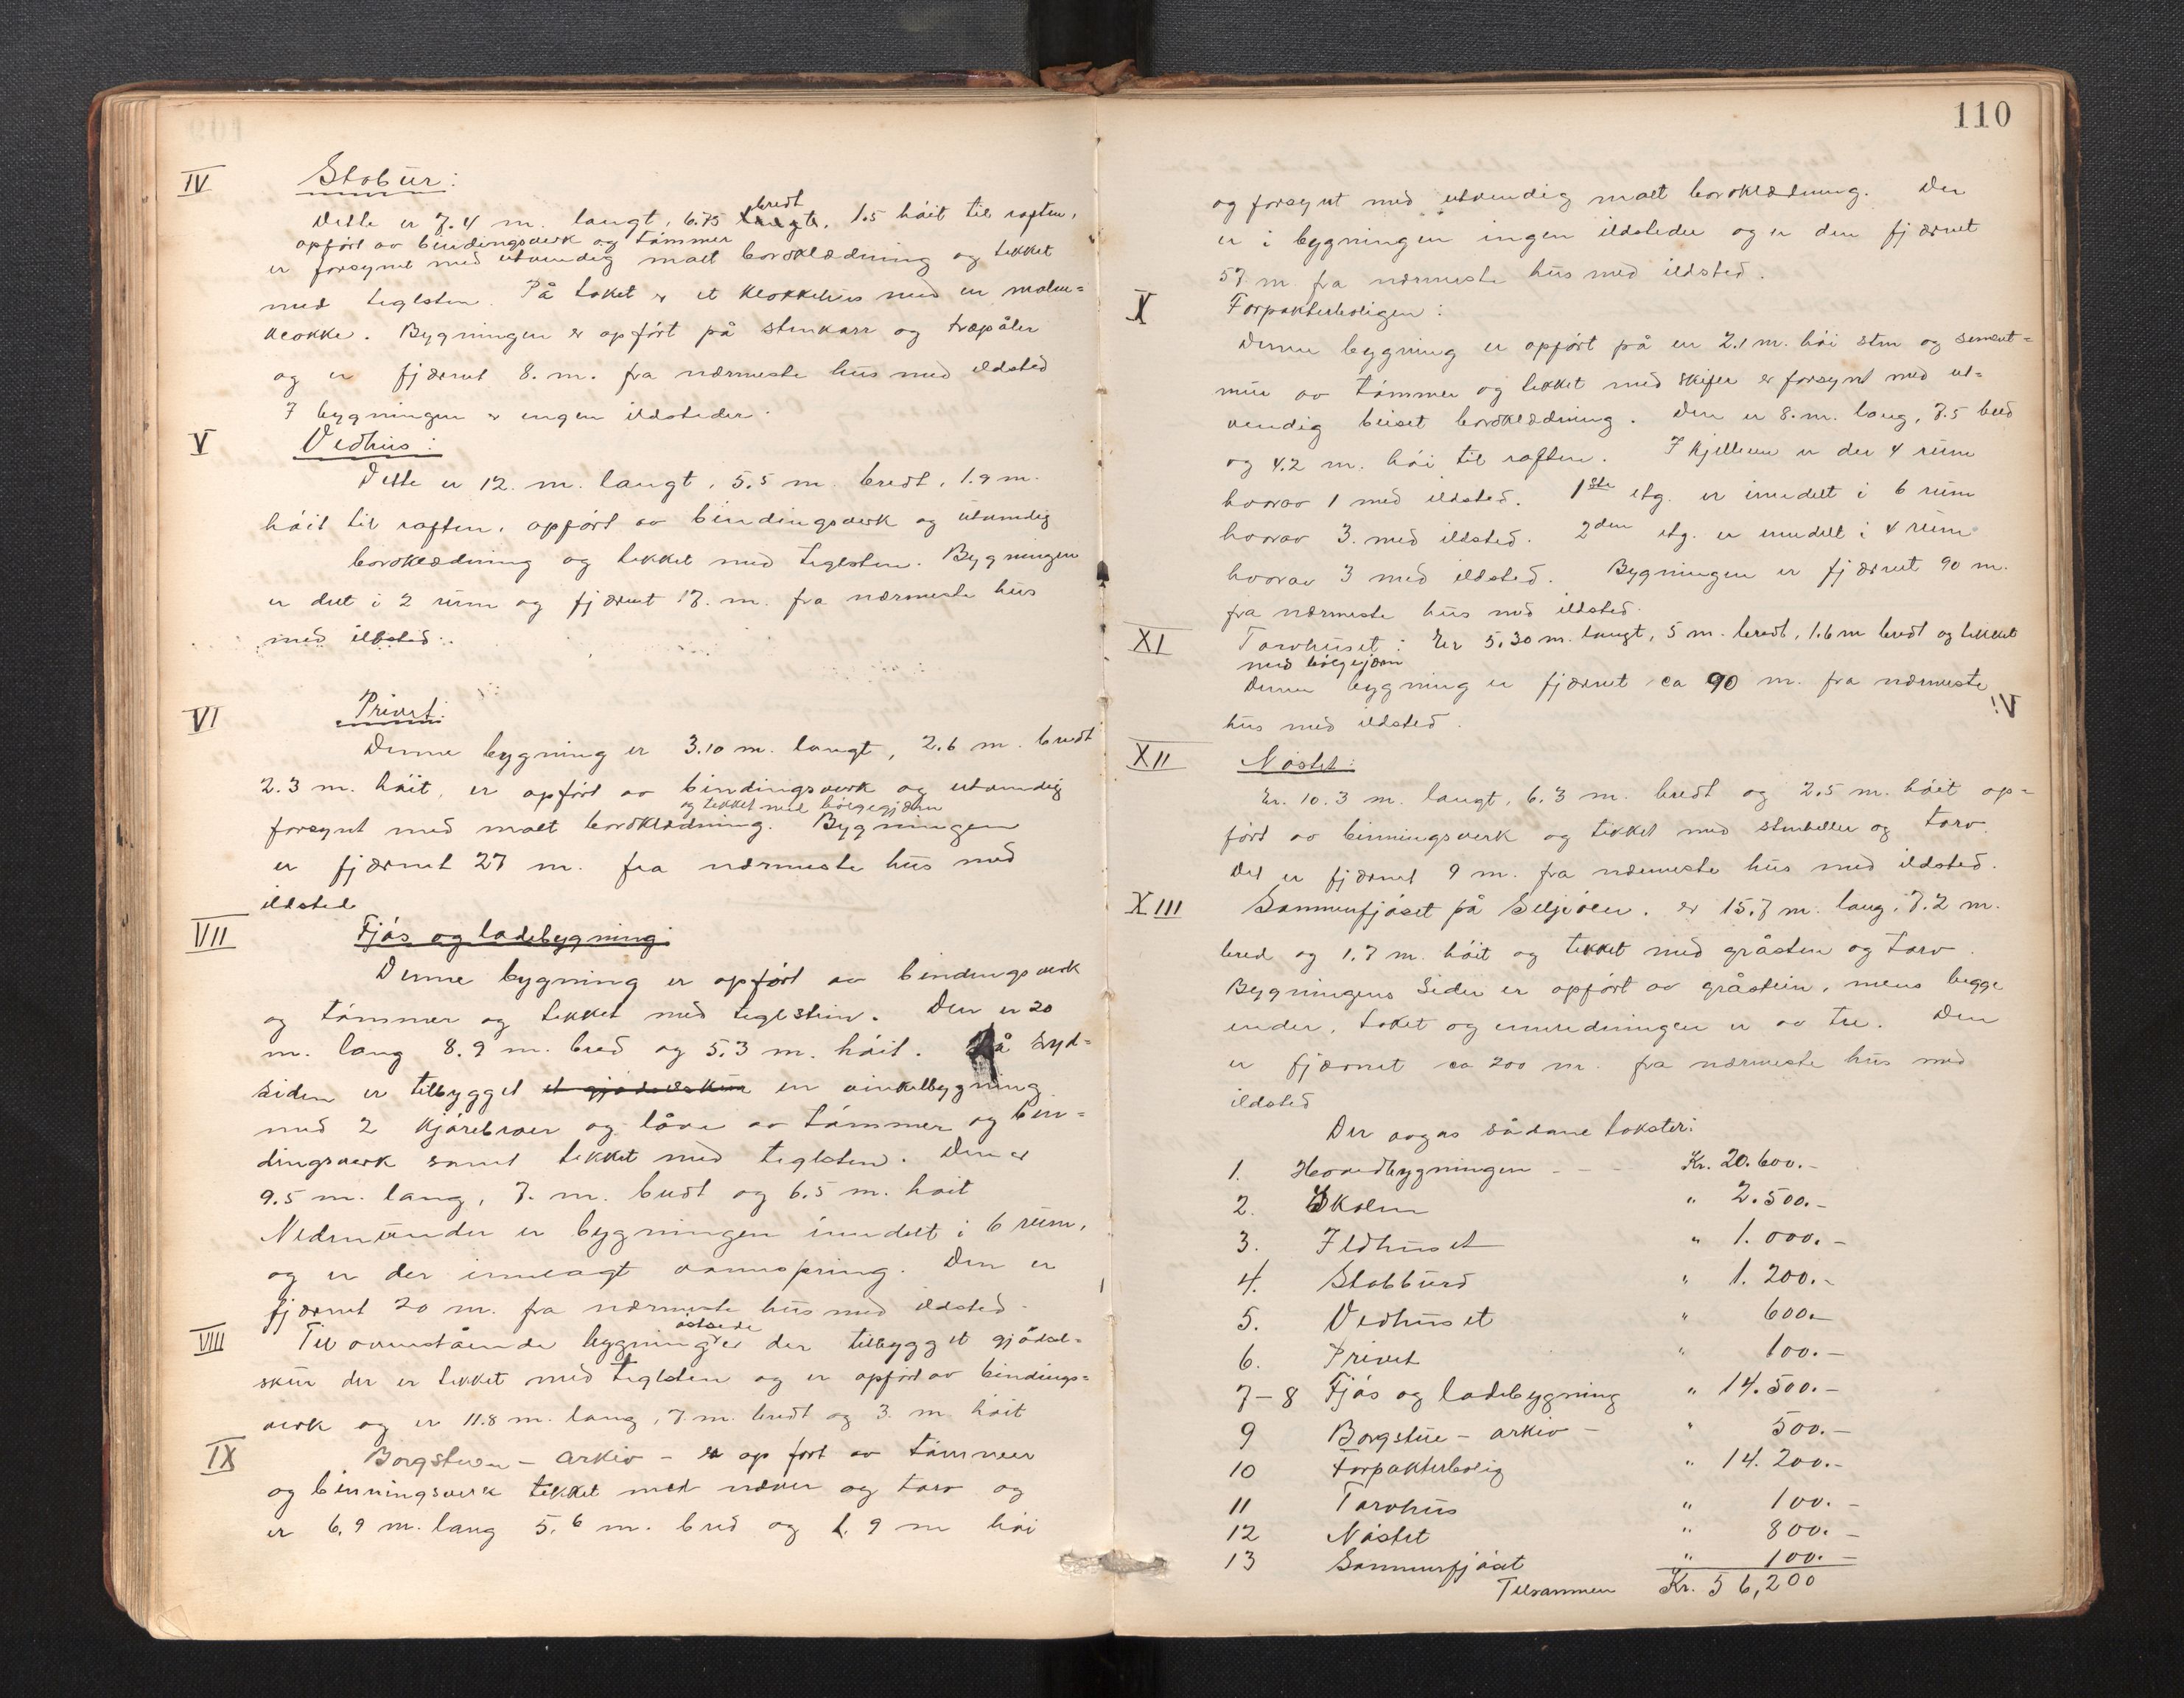 IV Stobur:
Dette er 7.4 m. langt, 6.75 bredt langt, 1.5 höit til raften,
opfört av bindingsverk og tömmer
er forsynt med utvendig malt bordklædning og tekket
med teglsten. På taket er et klokkehus med en malm=
klokke. Bygningen er opfört på stenkarr og træpåler
og er fjærnet 8. m. fra nærmeste hus med ildsted
I bygningen er ingen ildsteder.
V Vedhus:
Dette er 12. m. langt, 5.5 m. bredt, 1.9 m.
höit til raften, opfört av bindingsverk og utvendig
bordklædning og tekket med teglsten. Bygningen
er delt i 2 rum og fjærnet 17. m. fra nærmeste hus
med ildsted.
VI Privet:
Denne bygning er 3.10 m. langt, 2.6 m. bredt
2.3 m. höit, er opfört av bindingsverk og utvendig
og tekket med bölgegjærn
forsynt med malt bordklædning. Bygningen
er fjærnet 27 m. fra nærmeste hus med
ildsted
VII Fjös og ladebygning:
Denne bygning er opfört av bindingsverk
og tömmer og tekket med teglstein. Den er 20
m. lang 8.9 m. bred og 5.3 m. höit. På syd=
siden er tilbygget et gjödselskur en vinkelbygning
med 2 kjörebroer og låve av tömmer og bin=
dingsverk samt tekket med teglsten. Den er
9.5 m. lang, 7. m. bredt og 6.5 m. höit
Nedenunder er bygningen inndelt i 6 rum,
og er der innlagt vannspring. Den er
fjærnet 20 m. fra nærmeste hus med ildsted.
VIII Til ovenstående bygnings östside er der tilbygget gjödsel=
skur der er tekket med teglsten og er opfört av bindings=
verk og er 11.8 m. lang, 7. m. bredt og 3. m. höit
IX Borgstuen - arkiv - er opfört av tömmer
og binningsverk tekket med næver og torv og
er 6.9 m. lang 5.6 m. bred og 1.9 m höi
110
og forsynt med utvendig malt bordklædning. Der
er i bygningen ingen ildsteder og er den fjærnet
57 m. fra nærmeste hus med ildsted.
X Forpakterboligen:
Denne bygning er opfört på en 2.1 m. höi sten og sement=
mur av tömmer og tekket med skifer er forsynt med ut=
vendig beiset bordklædning. Den er 8. m. lang, 7.5 bred
og 4.2 m. höi til raften. I kjelleren er der 4 rum
hvorav 1 med ildsted. 1ste etg. er inndelt i 6 rum
hvorav 3. med ildsted. 2den etg. er inndelt i 4 rum
hvorav 3 med ildsted. Bygningen er fjærnet 90 m.
fra nærmeste hus med ildsted.
XI Torvhuset: Er 5.30 m. langt, 5 m. bredt, 1.6 m bredt og tekket
med bölgejærn
Denne bygning er fjærnet ca 90 m. fra nærmeste
hus med ildsted.
XII Nöstet:
Er. 10.3 m. langt, 6.3 m. bredt og 2.5 m. höit op=
fört av binningsverk og tekket med stenheller og torv.
Det er fjærnet 9 m. fra nærmeste hus med ildsted.
XIII Sommerfjöset på Seljeölen. er 15.7 m. lang, 7.2 m.
bred og 1.7 m. höit og tekket med gråsten og torv.
Bygningens sider er opfört av gråstein, mens begge
ender, taket og innredningen er av tre. Den
er fjærnet ca 200 m. fra nærmeste hus med
ildsted
Der avgas sådane takster:
1. Hovedbygningen - - - Kr. 20.600.-
2. Skolen " 2.500.-
3. Ildhuset " 1.000.-
4. Stabburd " 1.200.-
5. Vedhuset " 600.-
6. Privet " 100.-
7-8 Fjös og ladebygning " 14.500.-
9 Borgstue - arkiv - " 500.-
10 Forpakterbolig " 14.200.-
11 Torvhus " 100.-
12 Nöstet " 800.-
13 Sommerfjöset " 100.-
Tilsammen Kr. 56,200